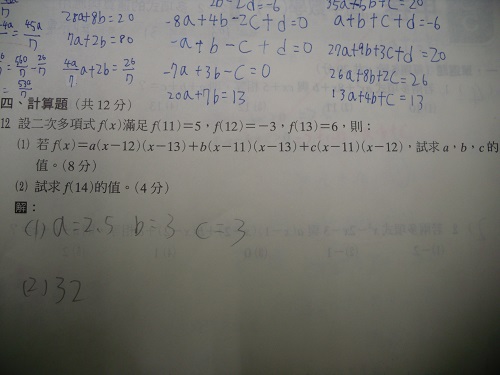 28a+8b=20
7a+2b=80
-8a+4b-2c+d=0
a+b+c+d=-6
-a+b-c+d=0
27a+9b+3c+d=20
-7a+3b-c=0
26a+8b+2c=26
20a+7b=13
13a+4b+c=13
四、計算題(共12分)
12 設二次多項式f(x)滿足f(11)=5,f(12)=-3,f(13)=6,則:
(1) 若f(x)=a(x-12)(x-13)+b(x-11)(x-13)+c(x-11)(x-12),試求a,b,c的
值。(8分)
(2) 試求f(14)的值。(4分)
解:
(1) a=2.5 b=3 c=3
(2) 32